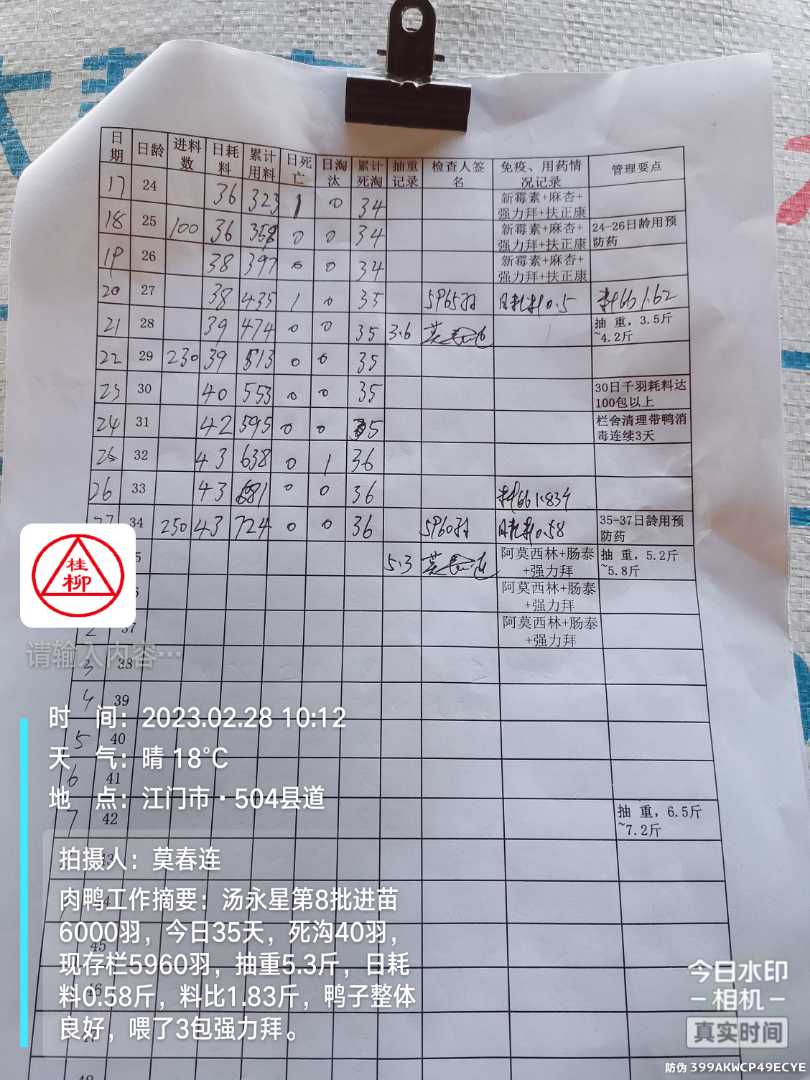 日期 日龄 进料数 日耗料 累计用料 日死亡 日淘汰 累计死淘 抽重记录 检查人签名 免疫、用药情况记录 管理要点
17 24 36 323 1 0 34 新霉素+麻杏+强力拜+扶正康
18 25 100 36 358 0 0 34 新霉素+麻杏+强力拜+扶正康 24-26日龄用预防药
19 26 38 397 0 0 34 新霉素+麻杏+强力拜+扶正康
20 27 38 435 1 0 35 5965羽 日耗料0.5 料比1.62
21 28 39 474 0 0 35 3.6 抽 重，3.5斤~4.2斤
22 29 230 39 513 0 0 35
23 30 40 553 0 0 35 30日千羽耗料达100包以上
24 31 42 595 0 0 35 栏舍清理带鸭消毒连续3天
25 32 43 638 0 1 36
26 33 43 681 0 0 36 料比1.834
27 34 250 43 724 0 0 36 5960羽 日耗料0.58 35-37日龄用预防药
5 5.3 阿莫西林+肠泰+强力拜 抽 重，5.2斤~5.8斤
6 阿莫西林+肠泰+强力拜
2 37 阿莫西林+肠泰+强力拜
3 38
4 39
5 40
6 41
7 42 抽 重，6.5斤~7.2斤
45
桂柳
请输入内容…
时 间：2023.02.28 10:12
天 气：晴 18℃
地 点：江门市·504县道
拍摄人：莫春连
肉鸭工作摘要：汤永星第8批进苗
6000羽，今日35天，死沟40羽，
现存栏5960羽，抽重5.3斤，日耗
料0.58斤，料比1.83斤，鸭子整体
良好，喂了3包强力拜。
今日水印
－相机－
真实时间
防伪 399AKWCP49ECYE